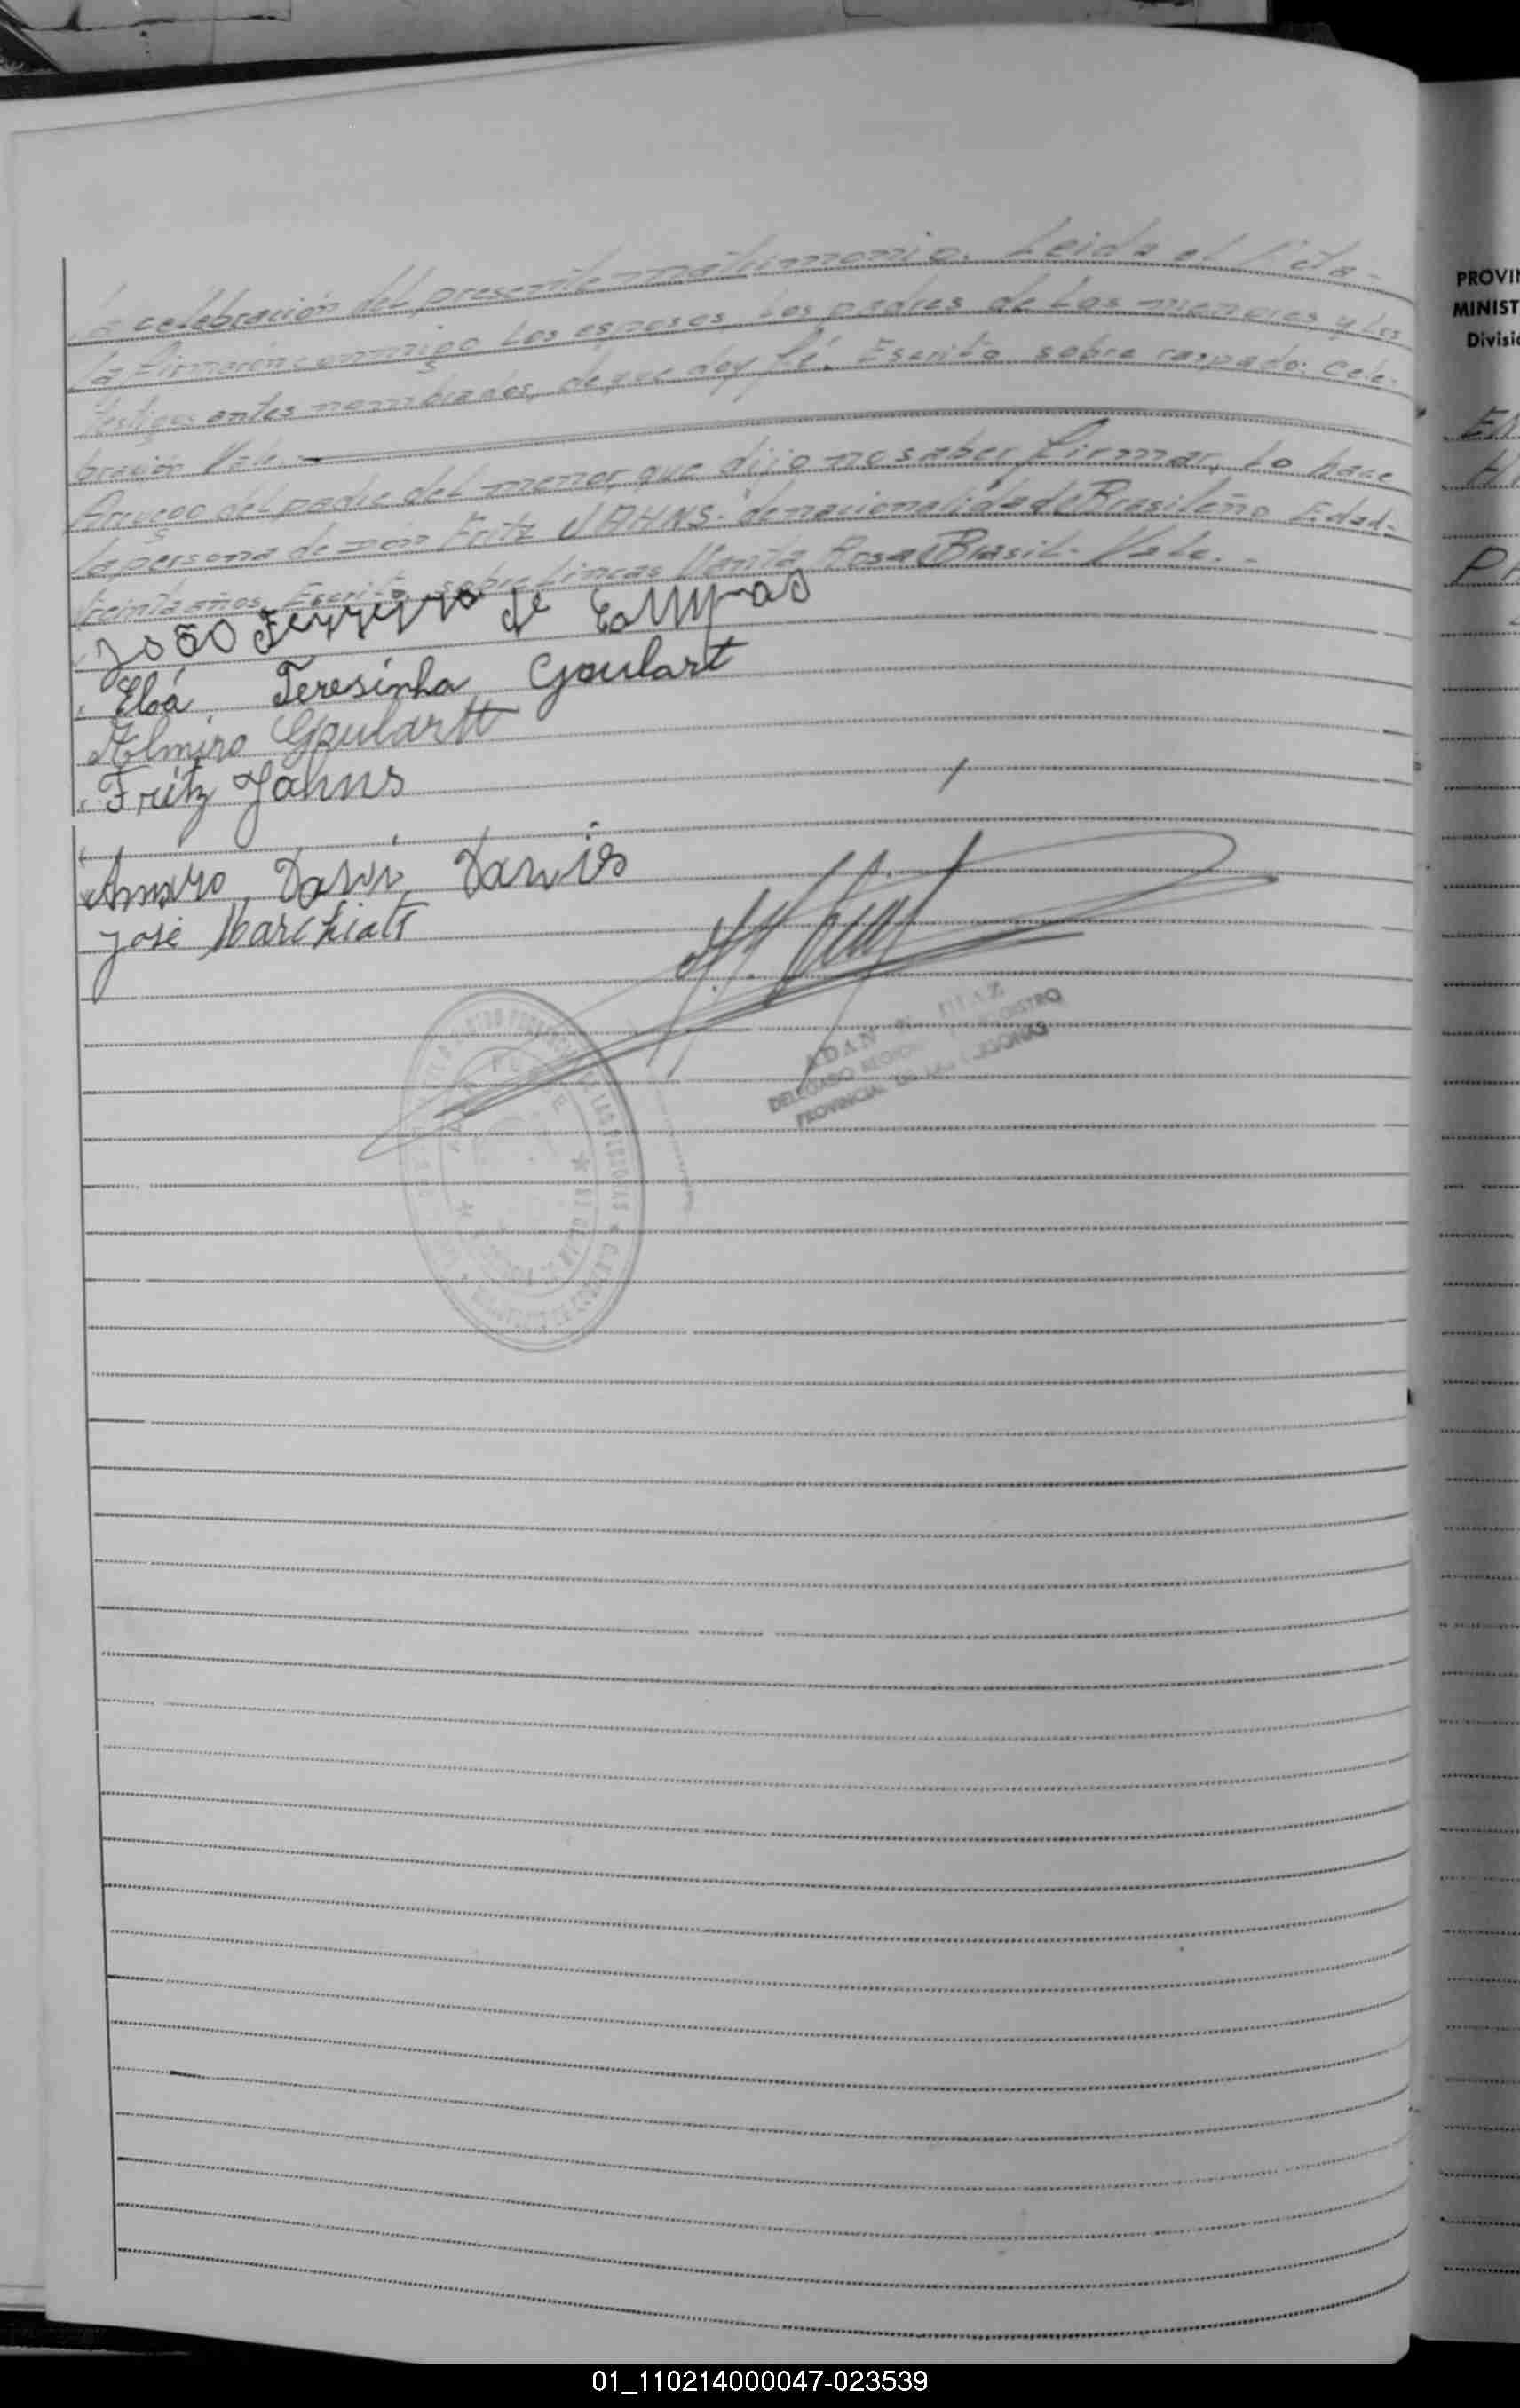 la celebración del presente matrimonio. Leida el Acta-
la firmaron conmigo los esposos, los padres de los menores y los
testigos antes nombrados, de que doy fé. Escrito sobre raspado: cele-
bración Vale. —
Arruego del padre del menor, que dijo no saber firmar, lo hace
la persona de don Fritz JAHNS. de nacionalidad Brasileña Edad-
treinta años. Escrito sobre lineas Rosa Brasil. Vale. -
João Ferreira de Campos
Elóa Teresinha Goulart
Almiro Goulartt
Fritz Jahns
Davi
José Marchiatt
ADAN DIAZ
DELEGADO REGISTRO
PROVINCIAL DE LAS PERSONAS
DE LAS PERSONAS
PROVIN
MINIST
Divisió
EN
01_110214000047-023539